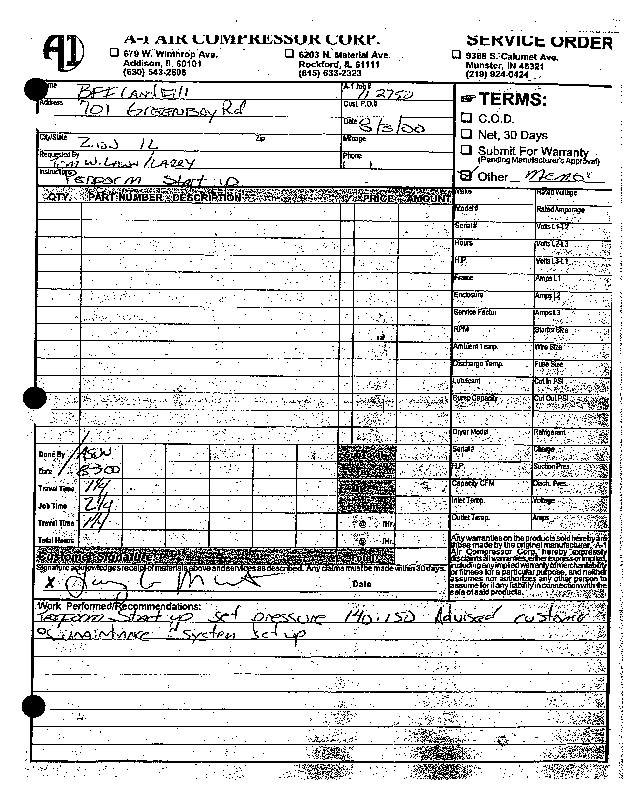 A-1 AIR COMPRESSOR CORP.
SERVICE ORDER
679 W. Winthrop Ave.
Addison, IL 60101
(630) 543-2606
6203 N. Material Ave.
Rockford, IL 61111
(815) 633-2323
9388 S. Calumet Ave.
Munster, IN 46321
(219) 924-0424
Name
A-1 Job #
Address 701 Greenbay Rd
Cust. P.O.#
Date 8/3/00
City/State Zion IL Zip
Mileage
Requested By Tom W. Lawn / Larry
Phone
Instructions Perform Start up
TERMS:
C.O.D.
Net, 30 Days
Submit For Warranty
(Pending Manufacturer's Approval)
Other Memo
QTY. PART NUMBER - DESCRIPTION PRICE AMOUNT
Make Rated Voltage
Model # Rated Amperage
Serial # Volts L1-L2
Hours Volts L2-L3
H.P. Volts L3-L1
Frame Amps L1
Enclosure Amps L2
Service Factor Amps L3
RPM Starter Size
Ambient Temp. Wire Size
Discharge Temp. Fuse Size
Lubricant Cut In PSI
Sump Capacity Cut Out PSI
Dryer Model Refrigerant
Serial # Charge
H.P. Suction Pres.
Capacity CFM Disch. Pres.
Inlet Temp. Voltage
Outlet Temp. Amps
Done By
Date 8-3-00
Travel Time 1/4
Job Time 2/4
Travel Time 1/4 @ /Hr.
Total Hours @ /Hr.
Any warranties on the products sold hereby are
those made by the original manufacturer. A-1
Air Compressor Corp. hereby expressly
disclaims all warranties, either express or implied,
including any implied warranty of merchantability
or fitness for a particular purpose, and neither
assumes nor authorizes any other person to
assume for it any liability in connection with the
sale of said products.
Customer Signature
Signature acknowledges receipt of materials above and services as described. Any claims must be made within 30 days.
X Date
Work Performed/Recommendations:
Perform Start up set pressure 140-150 Advised customer
on maintance system set up